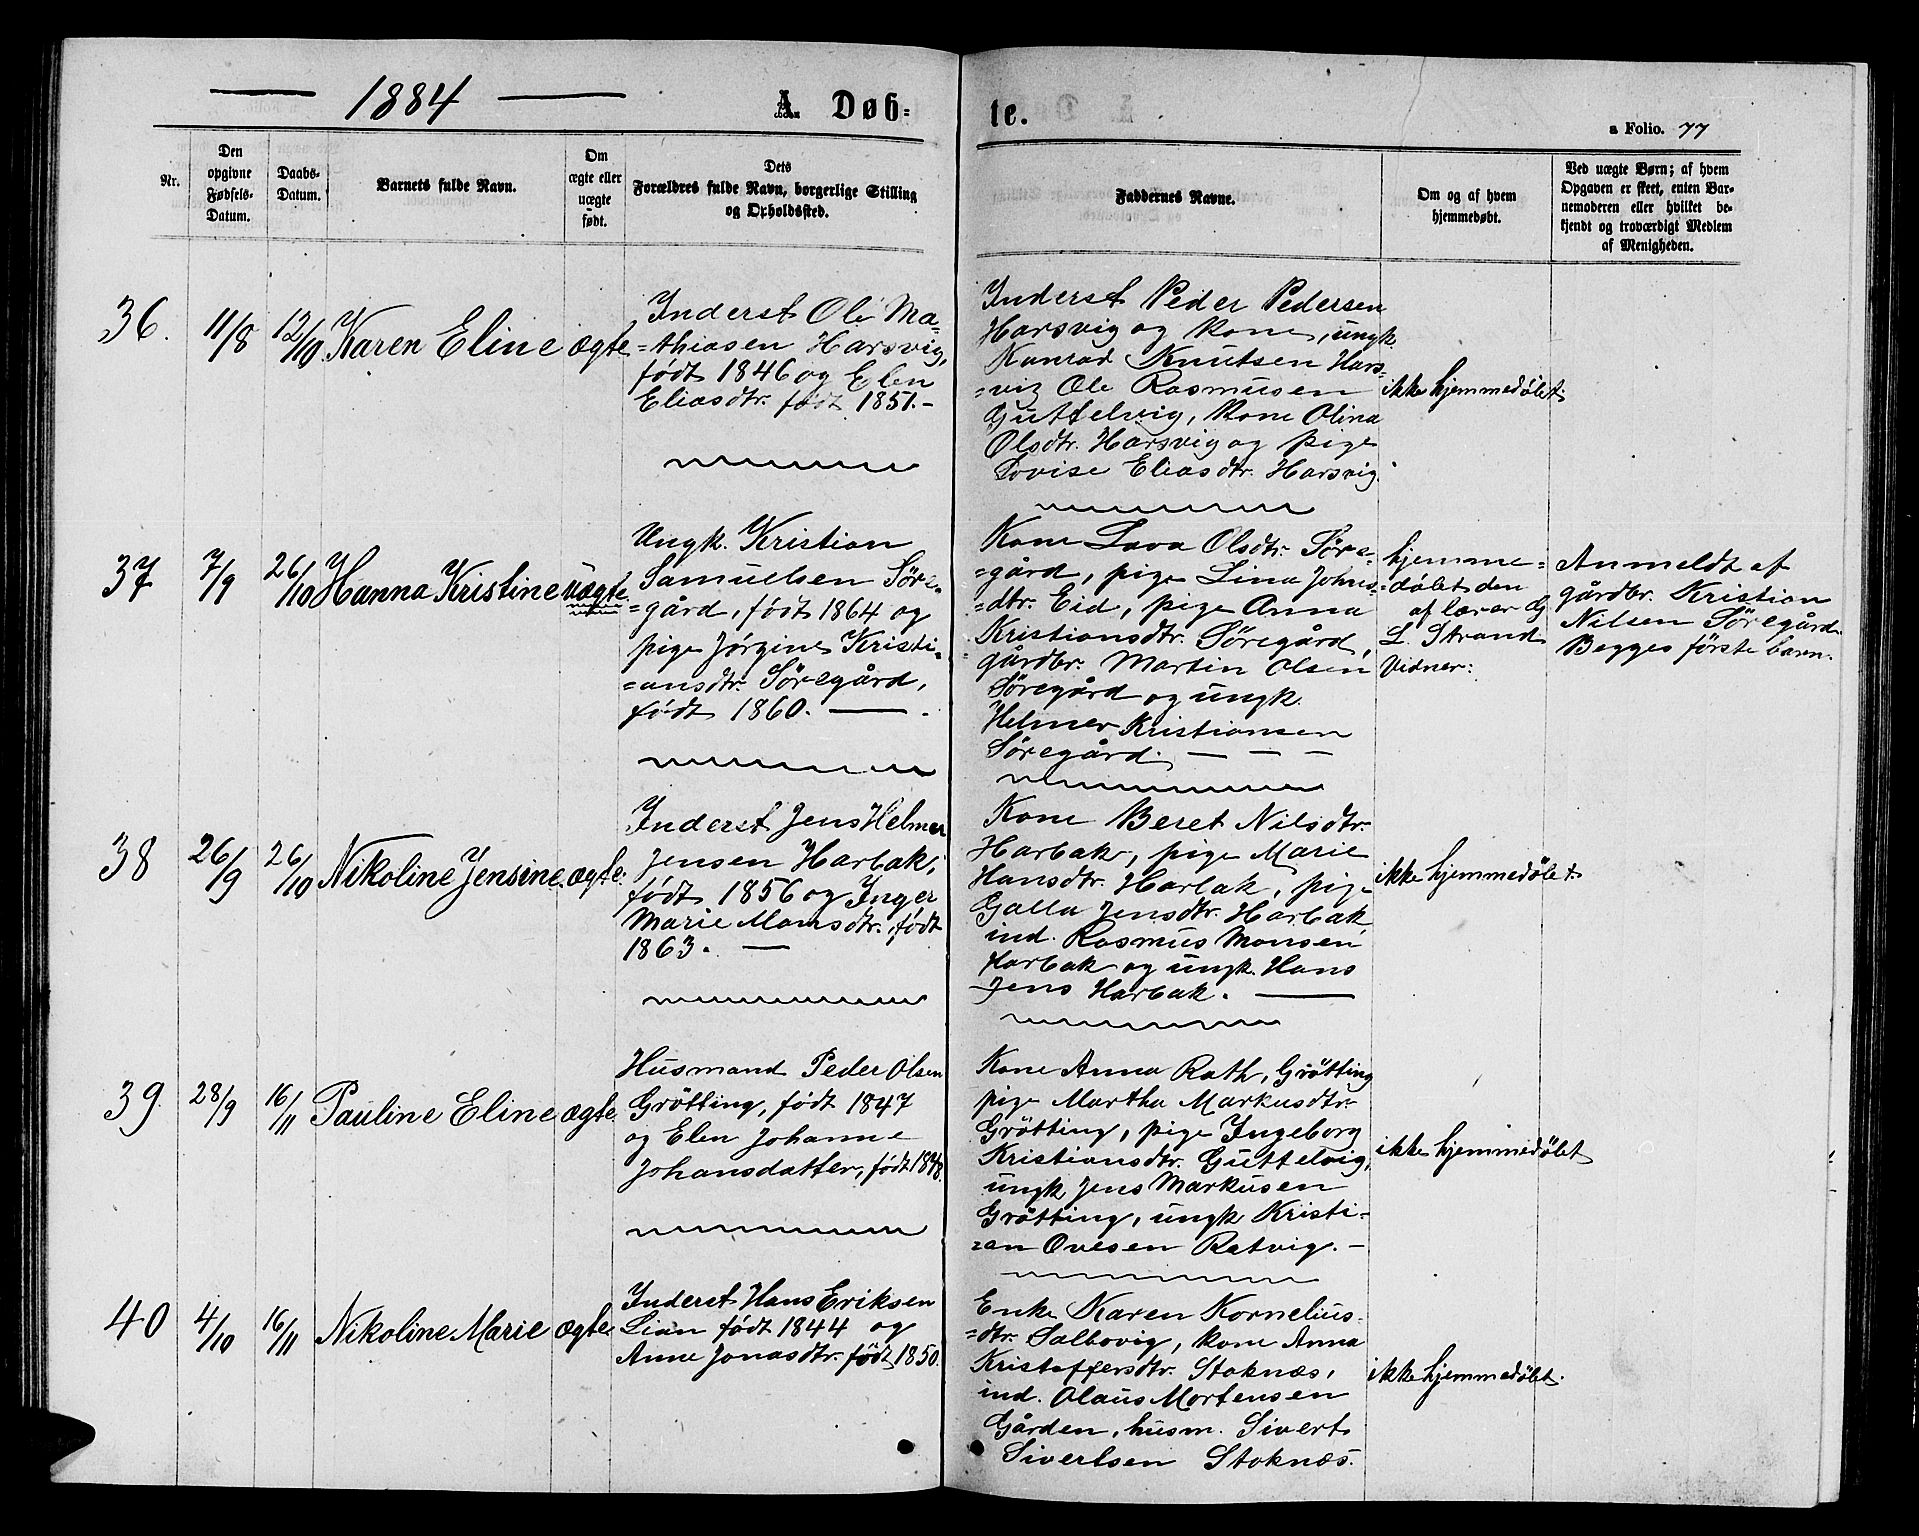 1884 A. Døb-
te.
a Folio. 77
Nr.
Den
opgivne
Fødsels-
Datum.
Daabs-
Datum.
Barnets fulde Navn.
Om
ægte eller
uægte
født.
Dets
Forældres fulde Navn, borgerlige Stilling
og Opholdssted.
Faddernes Navne.
Om og af hvem
hjemmedøbt.
Ved uægte Børn; af hvem
Opgaven er skeet, enten Bar-
nemoderen eller hvilket be-
kjendt og troværdigt Medlem
af Menigheden.
36. 11/8 12/10 Karen Eline ægte
Inderst Ole Ma-
=thiasen Harsvig,
født 1846 og Elen
Eliasdtr. født 1851.-
Inderst Peder Pedersen
Harsvig og kone, ungk.
Konrad Knutsen Hars-
=vig Ole Rasmusen
Guttelvig, kone Olina
Olsdtr. Harsvig og pige
Lovise Eliasdtr. Harsvig.
ikke hjemmedøbt.
37 7/9 26/10 Hanna Kristine uægte.
Ungk. Kristian
Samuelsen Søre-
=gård, født 1864 og
pige Jørgine Kristi-
=ansdtr. Søregård,
født 1860. —
Kone Lava Olsdtr. Søre-
=gård, pige Lina Johns-
=dtr. Eid, pige Anna
Kristiansdtr. Søregård,
gårdbr. Martin Olsen
Søregård og ungk.
Helmer Kristiansen
Søregård. — — —
hjemme-
=døbt den
af lærer G.
L. Strand
Vidner:
Anmeldt af
gårdbr. Kristian
Nilsen Søregård.
Begges første barn.
38 26/9 26/10 Nikoline Jensine. ægte.
Inderst Jens Helmer
Jensen Harbak,
født 1856 og Inger
Marie Monsdtr. født
1863. —
Kone Beret Nilsdtr.
Harbak, pige Marie
Hansdtr. Harbak, pige
Galla Jensdtr. Harbak
ind. Rasmus Monsen
Harbak og ungk. Hans
Jens Harbak. —
ikke hjemmedøbt.
39. 28/9 16/11 Pauline Eline ægte.
Husmand Peder Olsen
Grøtting, født 1847
og Elen Johanne
Johansdatter, født 1848.
Kone Anna Rath, Grøtting
pige Martha Markusdtr.
Grøtting, pige Ingeborg
Kristiansdtr. Guttelvig,
ungk Jens Markusen
Grøtting, ungk Kristi-
=an Ovesen Ratvig. —
ikke hjemmedøbt
40 4/10 16/11 Nikoline Marie ægte.
Inderst Hans Eriksen
Lian født 1844 og
Anne Jonasdtr. født 1850.
Enke Karen Kornelius-
=dtr. Salbovig, kone Anna
Kristoffersdtr. Stoknæs,
ind. Olaus Mortensen
Gården, husm. Sivert
Sivertsen Stoknæs.
ikke hjemmedøbt.